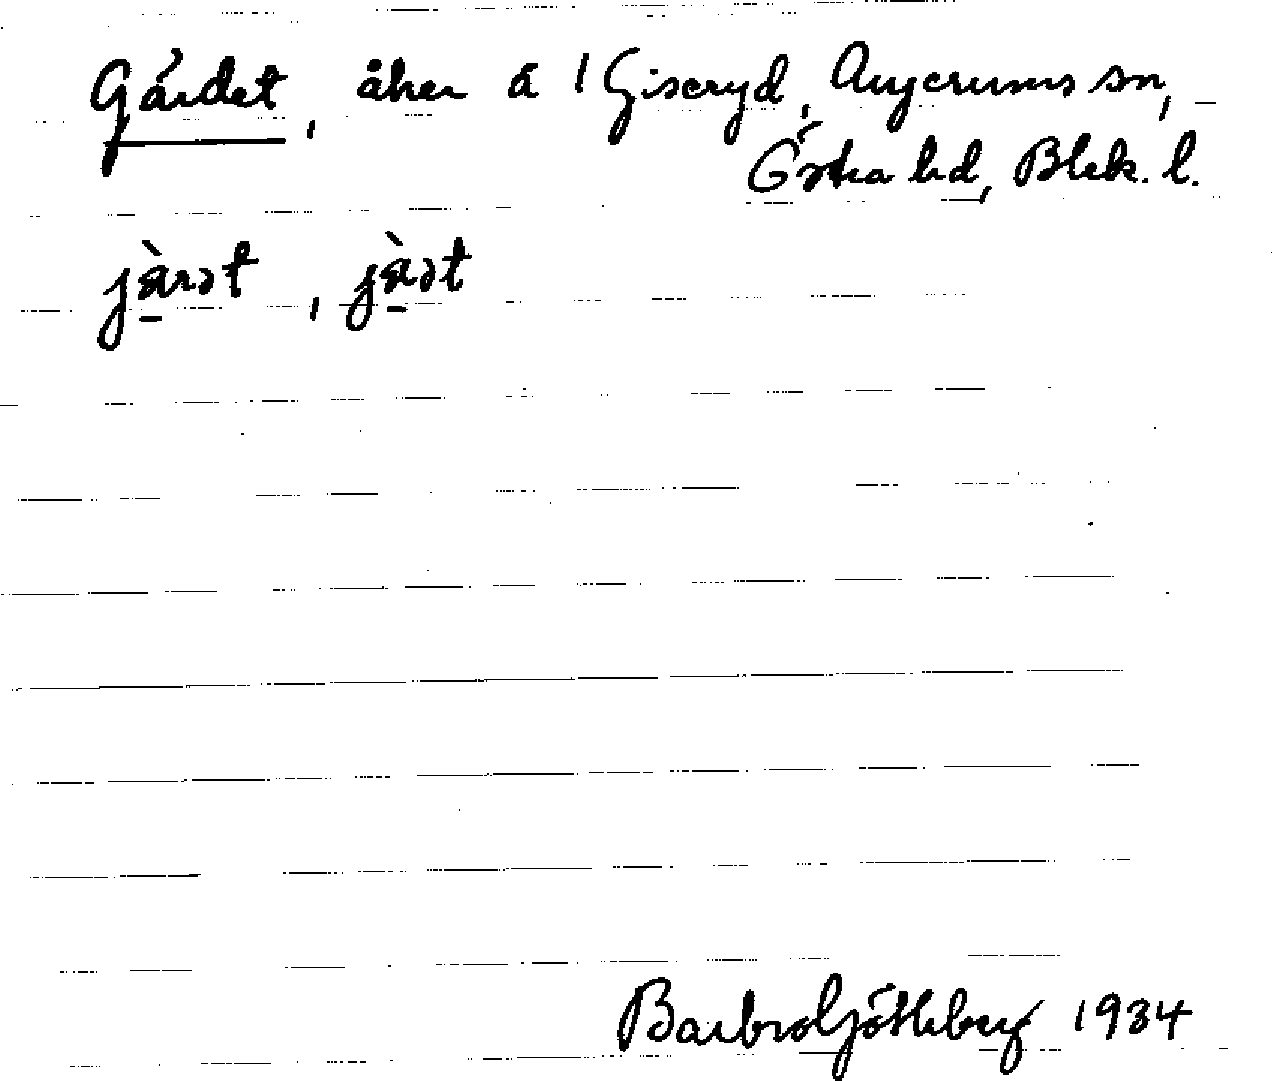 Gärdet, åker å 1 Giseryd, Augerums sn,
Östra hd, Blek. l.
jä̀rət, jä̀ət
Barbro Götheberg 1934